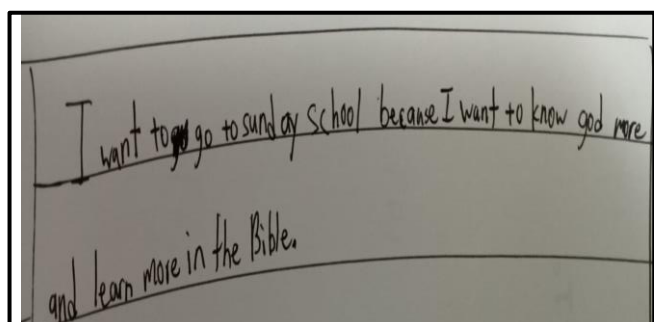 I want to go to sunday school because I want to know god more
and learn more in the Bible.